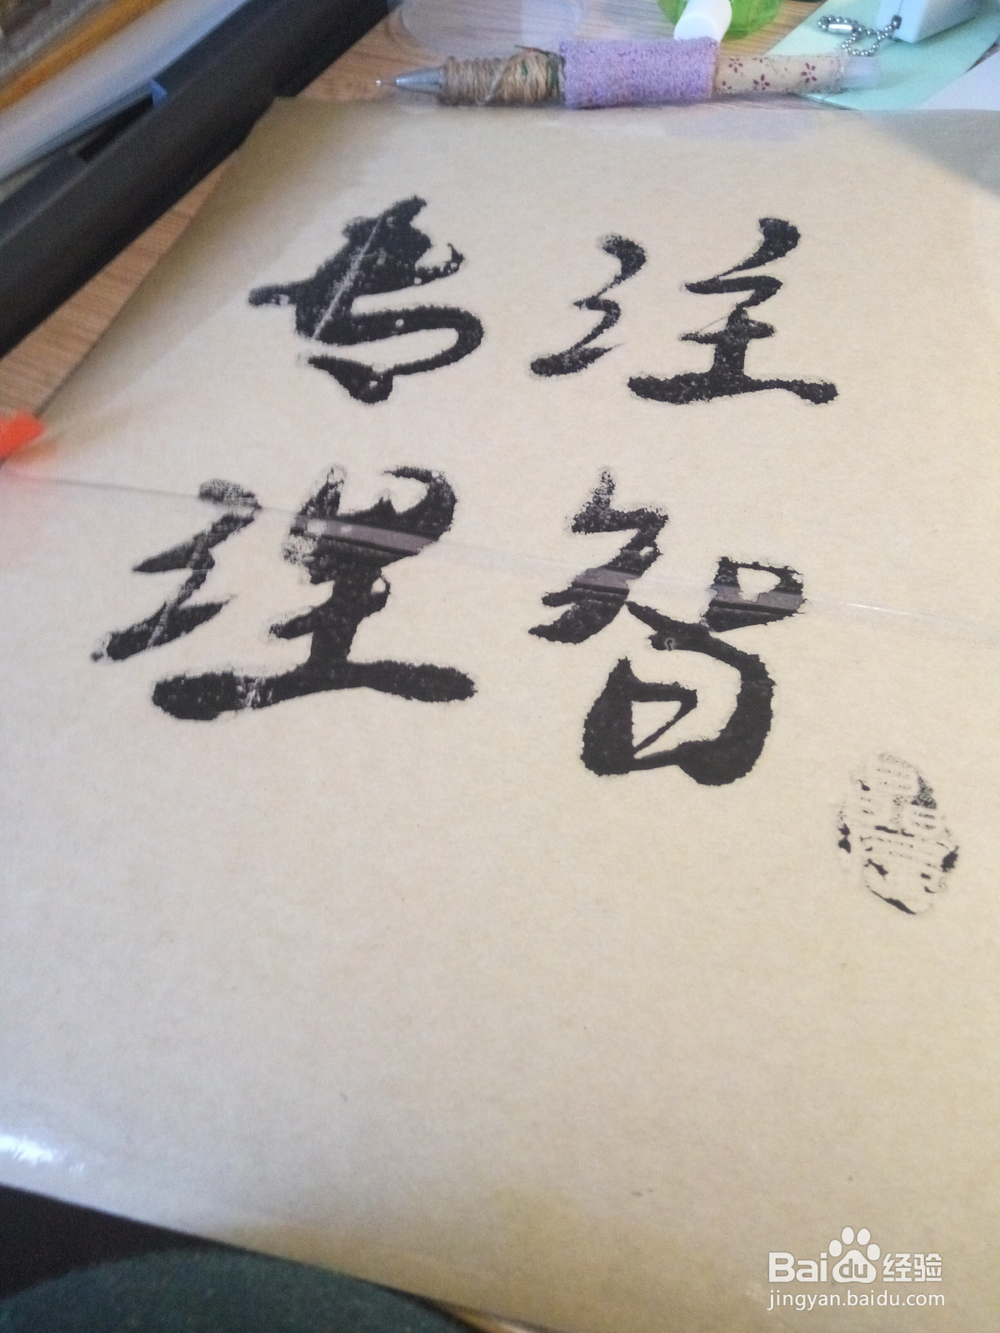 专注
理智
Baidu经验
jingyan.baidu.com